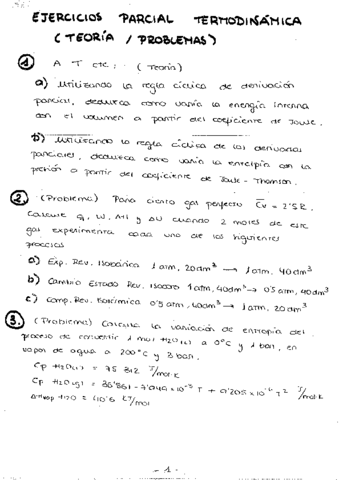 EJERCICIOS PARCIAL TERMODINÁMICA
(TEORÍA / PROBLEMAS)
1. A T cte: (Teoría)
a) Utilizando la regla cíclica de derivación
parcial, deduzca como varía la energía interna
con el volumen a partir del coeficiente de Joule.
b) Utilizando la regla cíclica de las derivadas
parciales, deduzca como varía la entalpía con la
presión a partir del coeficiente de Joule - Thomson.
2. (Problema) Para cierto gas perfecto C̅v = 2'5R.
Calcule Q, W, ΔH y ΔU cuando 2 moles de este
gas experimenta cada uno de los siguientes
procesos
a) Exp. Rev. Isobárica 1 atm, 20dm³ → 1 atm, 40dm³
b) Cambio Estado Rev. Isocoro 1 atm, 40dm³ → 0'5 atm, 40dm³
c) Comp. Rev. Isotérmica 0'5 atm, 40dm³ → 1 atm, 20dm³
3. (Problema) Calcule la variación de entropía del
proceso de convertir 1 mol H₂O(s) a 0°C y 1 bar, en
vapor de agua a 200°C y 3 bar.
Cp H₂O(l) = 75'312 J/mol·K
Cp H₂O(g) = 36'861 - 7'949×10⁻³ T + 9'205×10⁻⁶ T² J/mol·K
H₂O = 40'6 kJ/mol
- 1 -